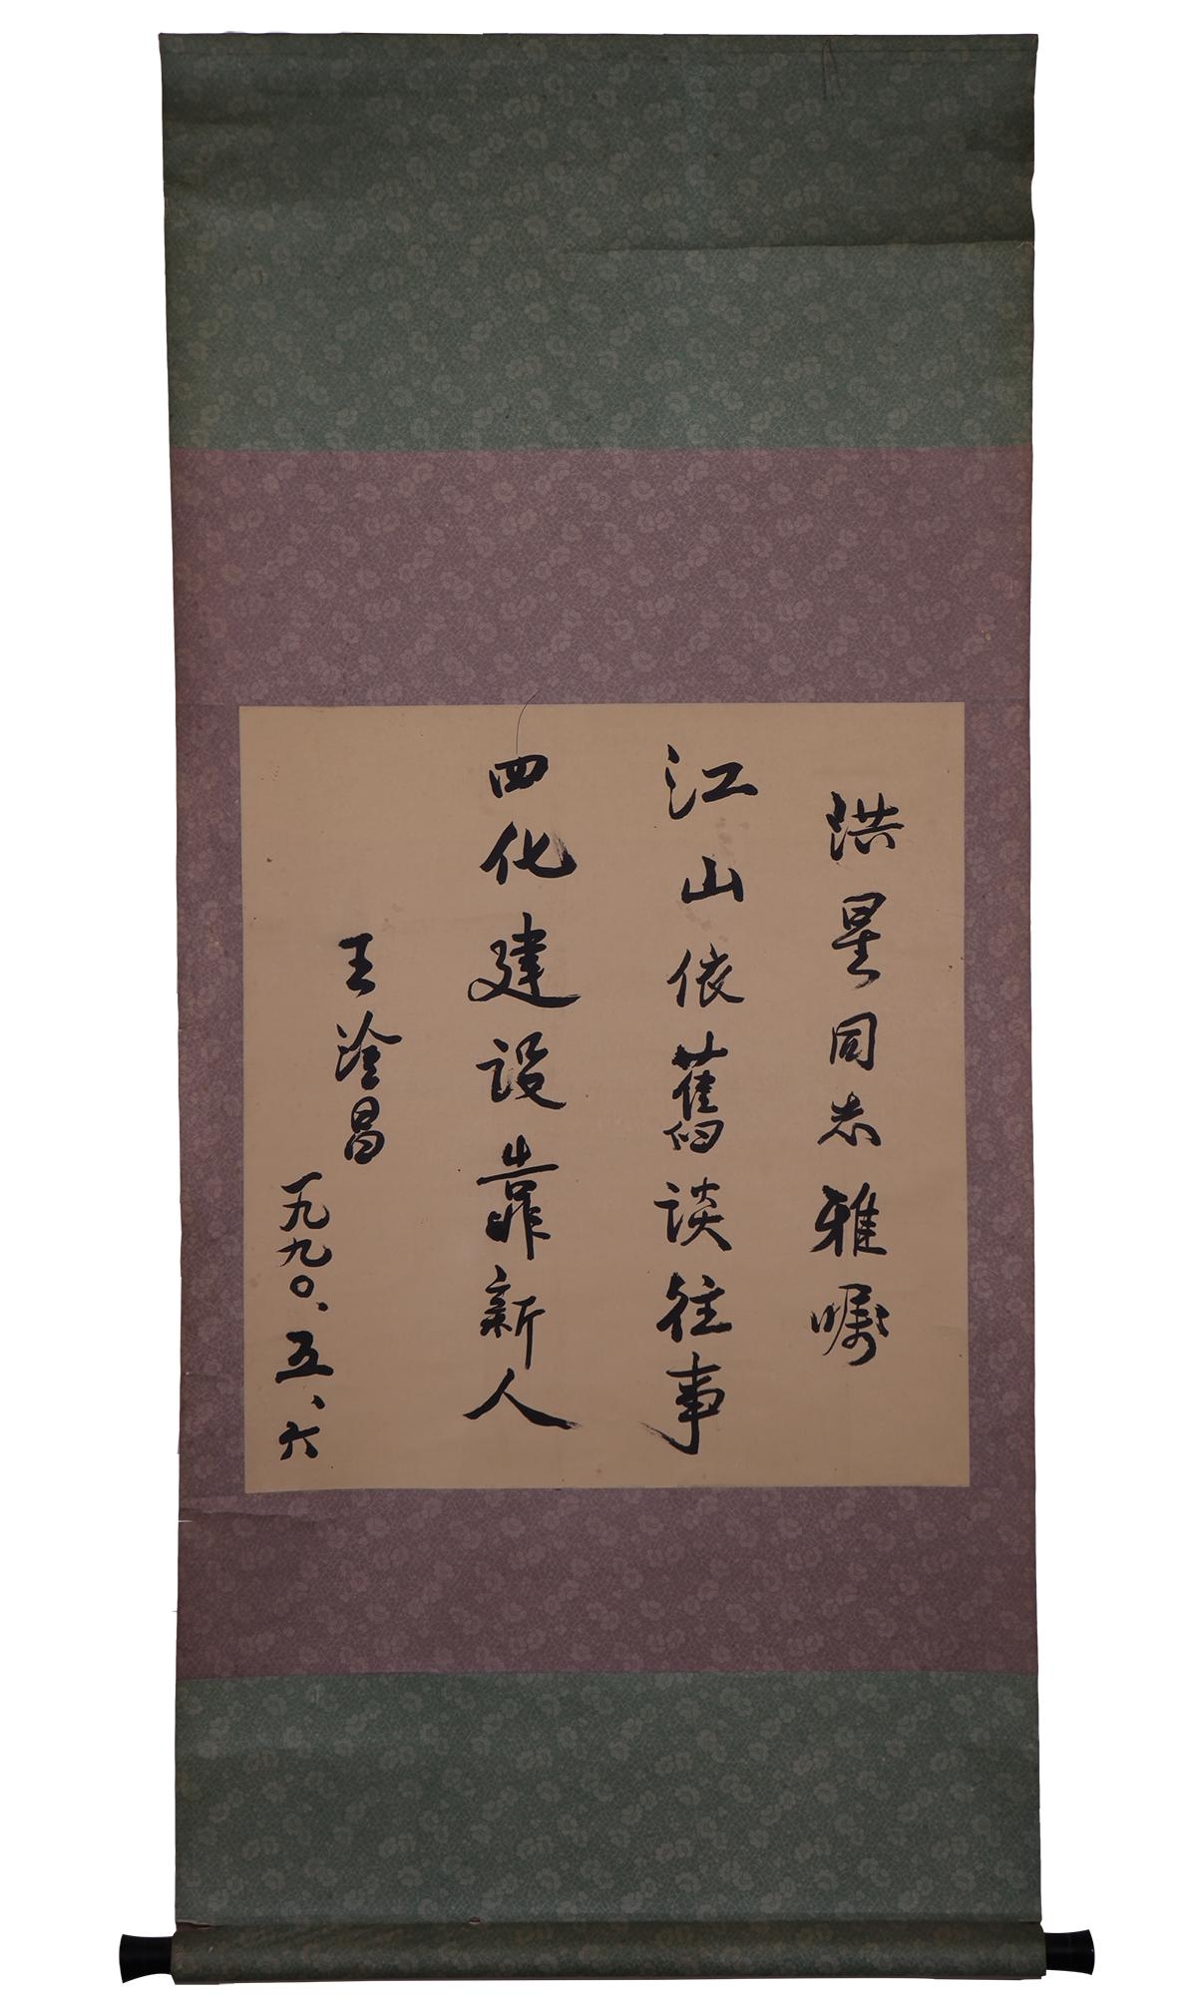 洪星同志雅嘱
江山依舊談往事
四化建设靠新人
王淦昌
一九九〇、五、六